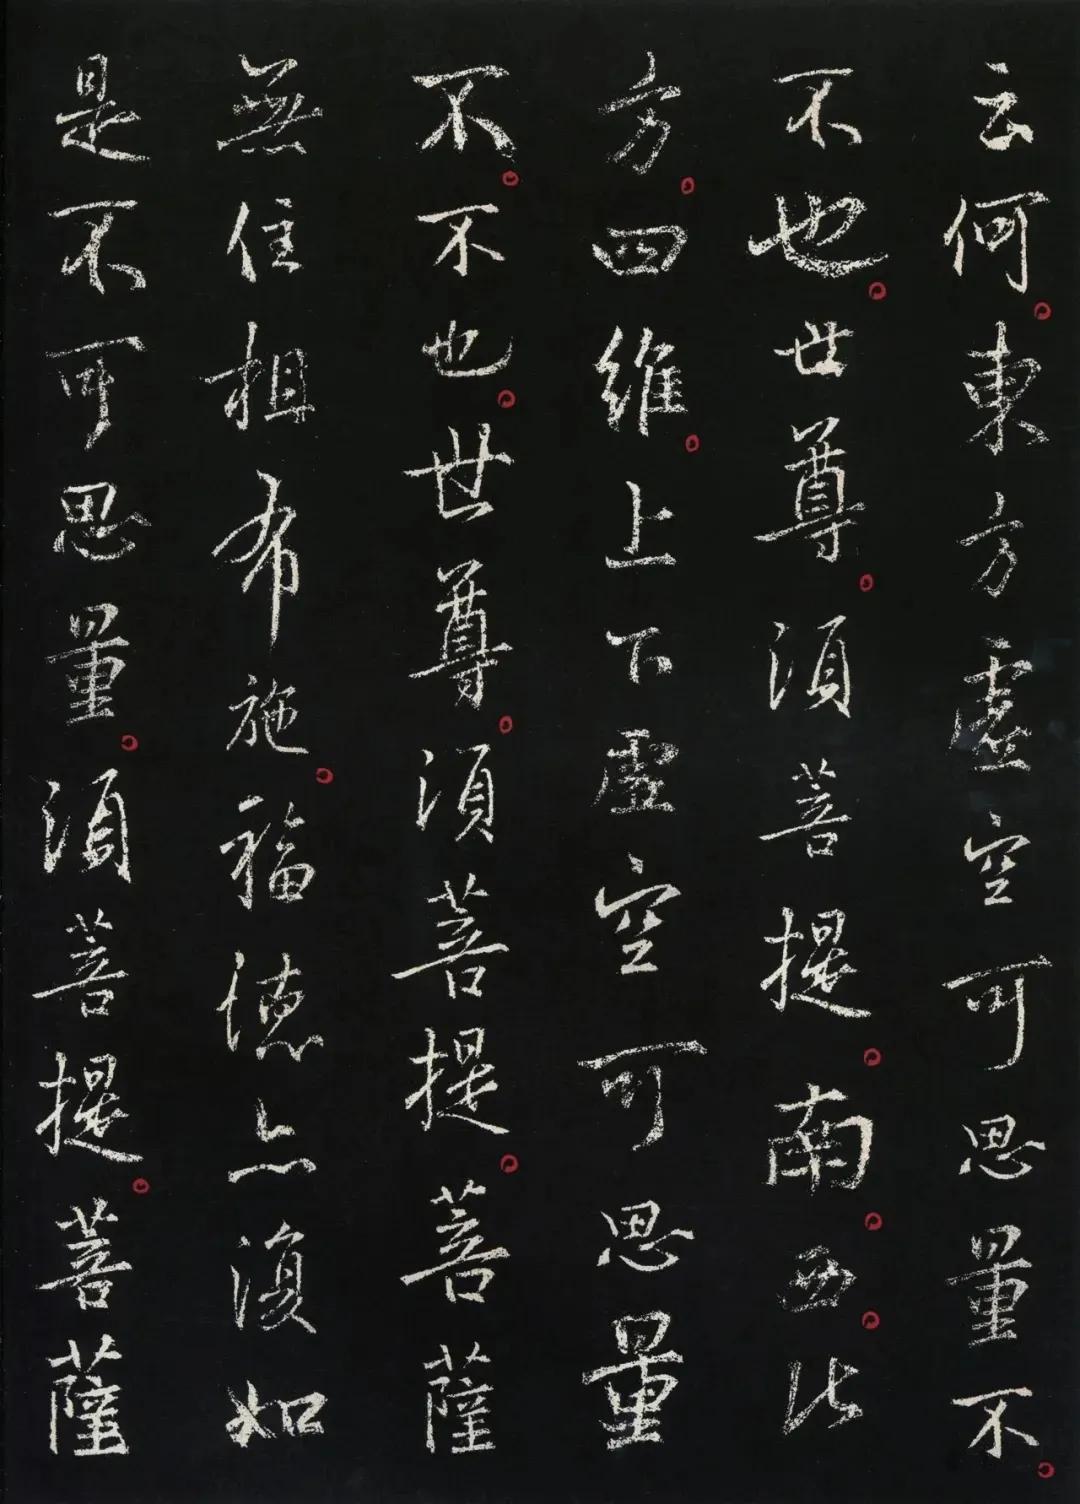 云何東方虛空可思量不
不也世尊須菩提南西北
方四維上下虛空可思量
不不也世尊須菩提菩薩
無住相布施福德亦復如
是不可思量須菩提菩薩